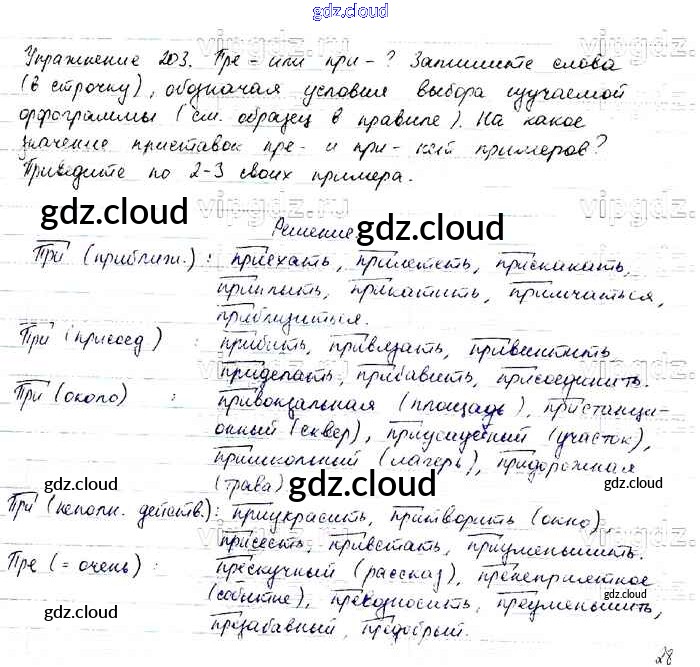 gdz.cloud
Упражнение 203. Пре- или при-? Запишите слова
(в строчку), обозначая условия выбора изучаемой
орфограммы (см. образец в правиле). На какое
значение приставок пре- и при- нет примеров?
Приведите по 2-3 своих примера.
gdz.cloud
Решение gdz.cloud
При (приближ.): приехать, прилететь, прискакать,
приплыть, прикатить, примчаться,
приблизиться.
При (присоед): прибить, привязать, привинтить
приделать, прибавить, присоединить.
При (около): привокзальная (площадь), пристанци-
онный (сквер), приусадебный (участок),
пришкольный (лагерь), придорожная
(трава)
gdz.cloud gdz.cloud gdz.cloud
При (неполн. действ.): приукрасить, притворить (окно)
присесть, привстать, приуменьшить.
Пре (= очень): прескучный (рассказ), пренеприятное
(событие), преподносить, преуменьшить,
презабавный, предобрый.
gdz.cloud gdz.cloud gdz.cloud
28